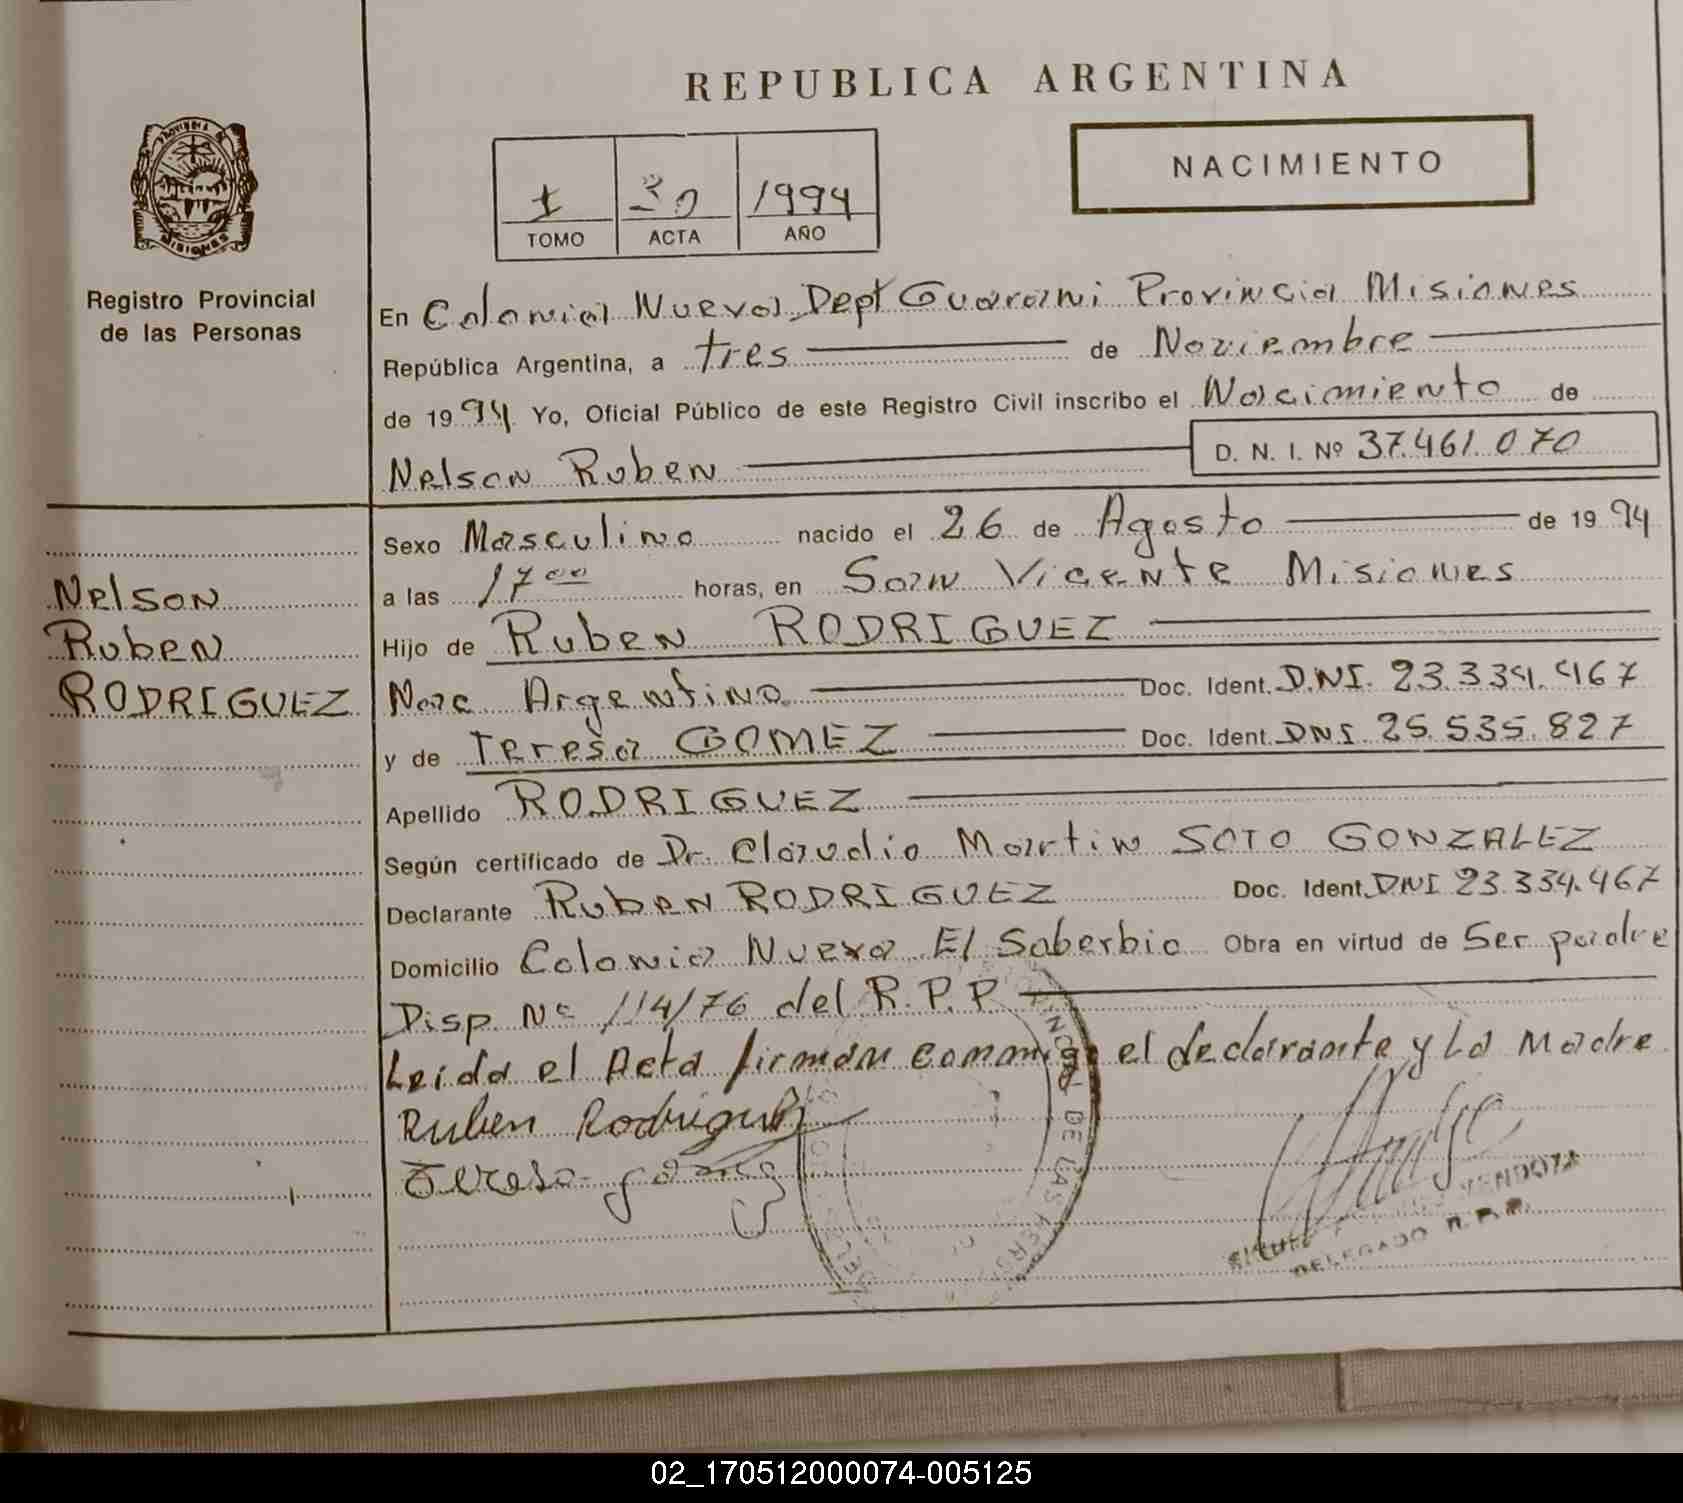 REPUBLICA ARGENTINA
PROVINCIA DE
MISIONES
Registro Provincial
de las Personas
1 30 1994
TOMO ACTA AÑO
NACIMIENTO
En Colonia Nueva, Dept Guarani Provincia Misiones
República Argentina, a tres de Noviembre
de 1994 Yo, Oficial Público de este Registro Civil inscribo el Nacimiento de
Nelson Ruben D. N. I. Nº 37.461.070
Nelson
Ruben
RODRIGUEZ
Sexo Masculino nacido el 26 de Agosto de 1994
a las 17 00 horas, en San Vicente Misiones
Hijo de Ruben RODRIGUEZ
Nac Argentina Doc. Ident. D.NI. 23.334.467
y de Teresa GOMEZ Doc. Ident. DNI. 25.535.827
Apellido RODRIGUEZ
Según certificado de Dr. Claudio Martin SOTO GONZALEZ
Declarante Ruben RODRIGUEZ Doc. Ident. DNI 23.334.467
Domicilio Colonia Nueva El Soberbio Obra en virtud de Ser padre
Disp. Nº 114/76 del R.P.P.
Leida el Acta firman conmigo el declarante y La Madre
Ruben Rodriguez
Teresa gomez
DE LAS PERSO
MENDOZA
DELEGADO R.P.P.
02_170512000074-005125